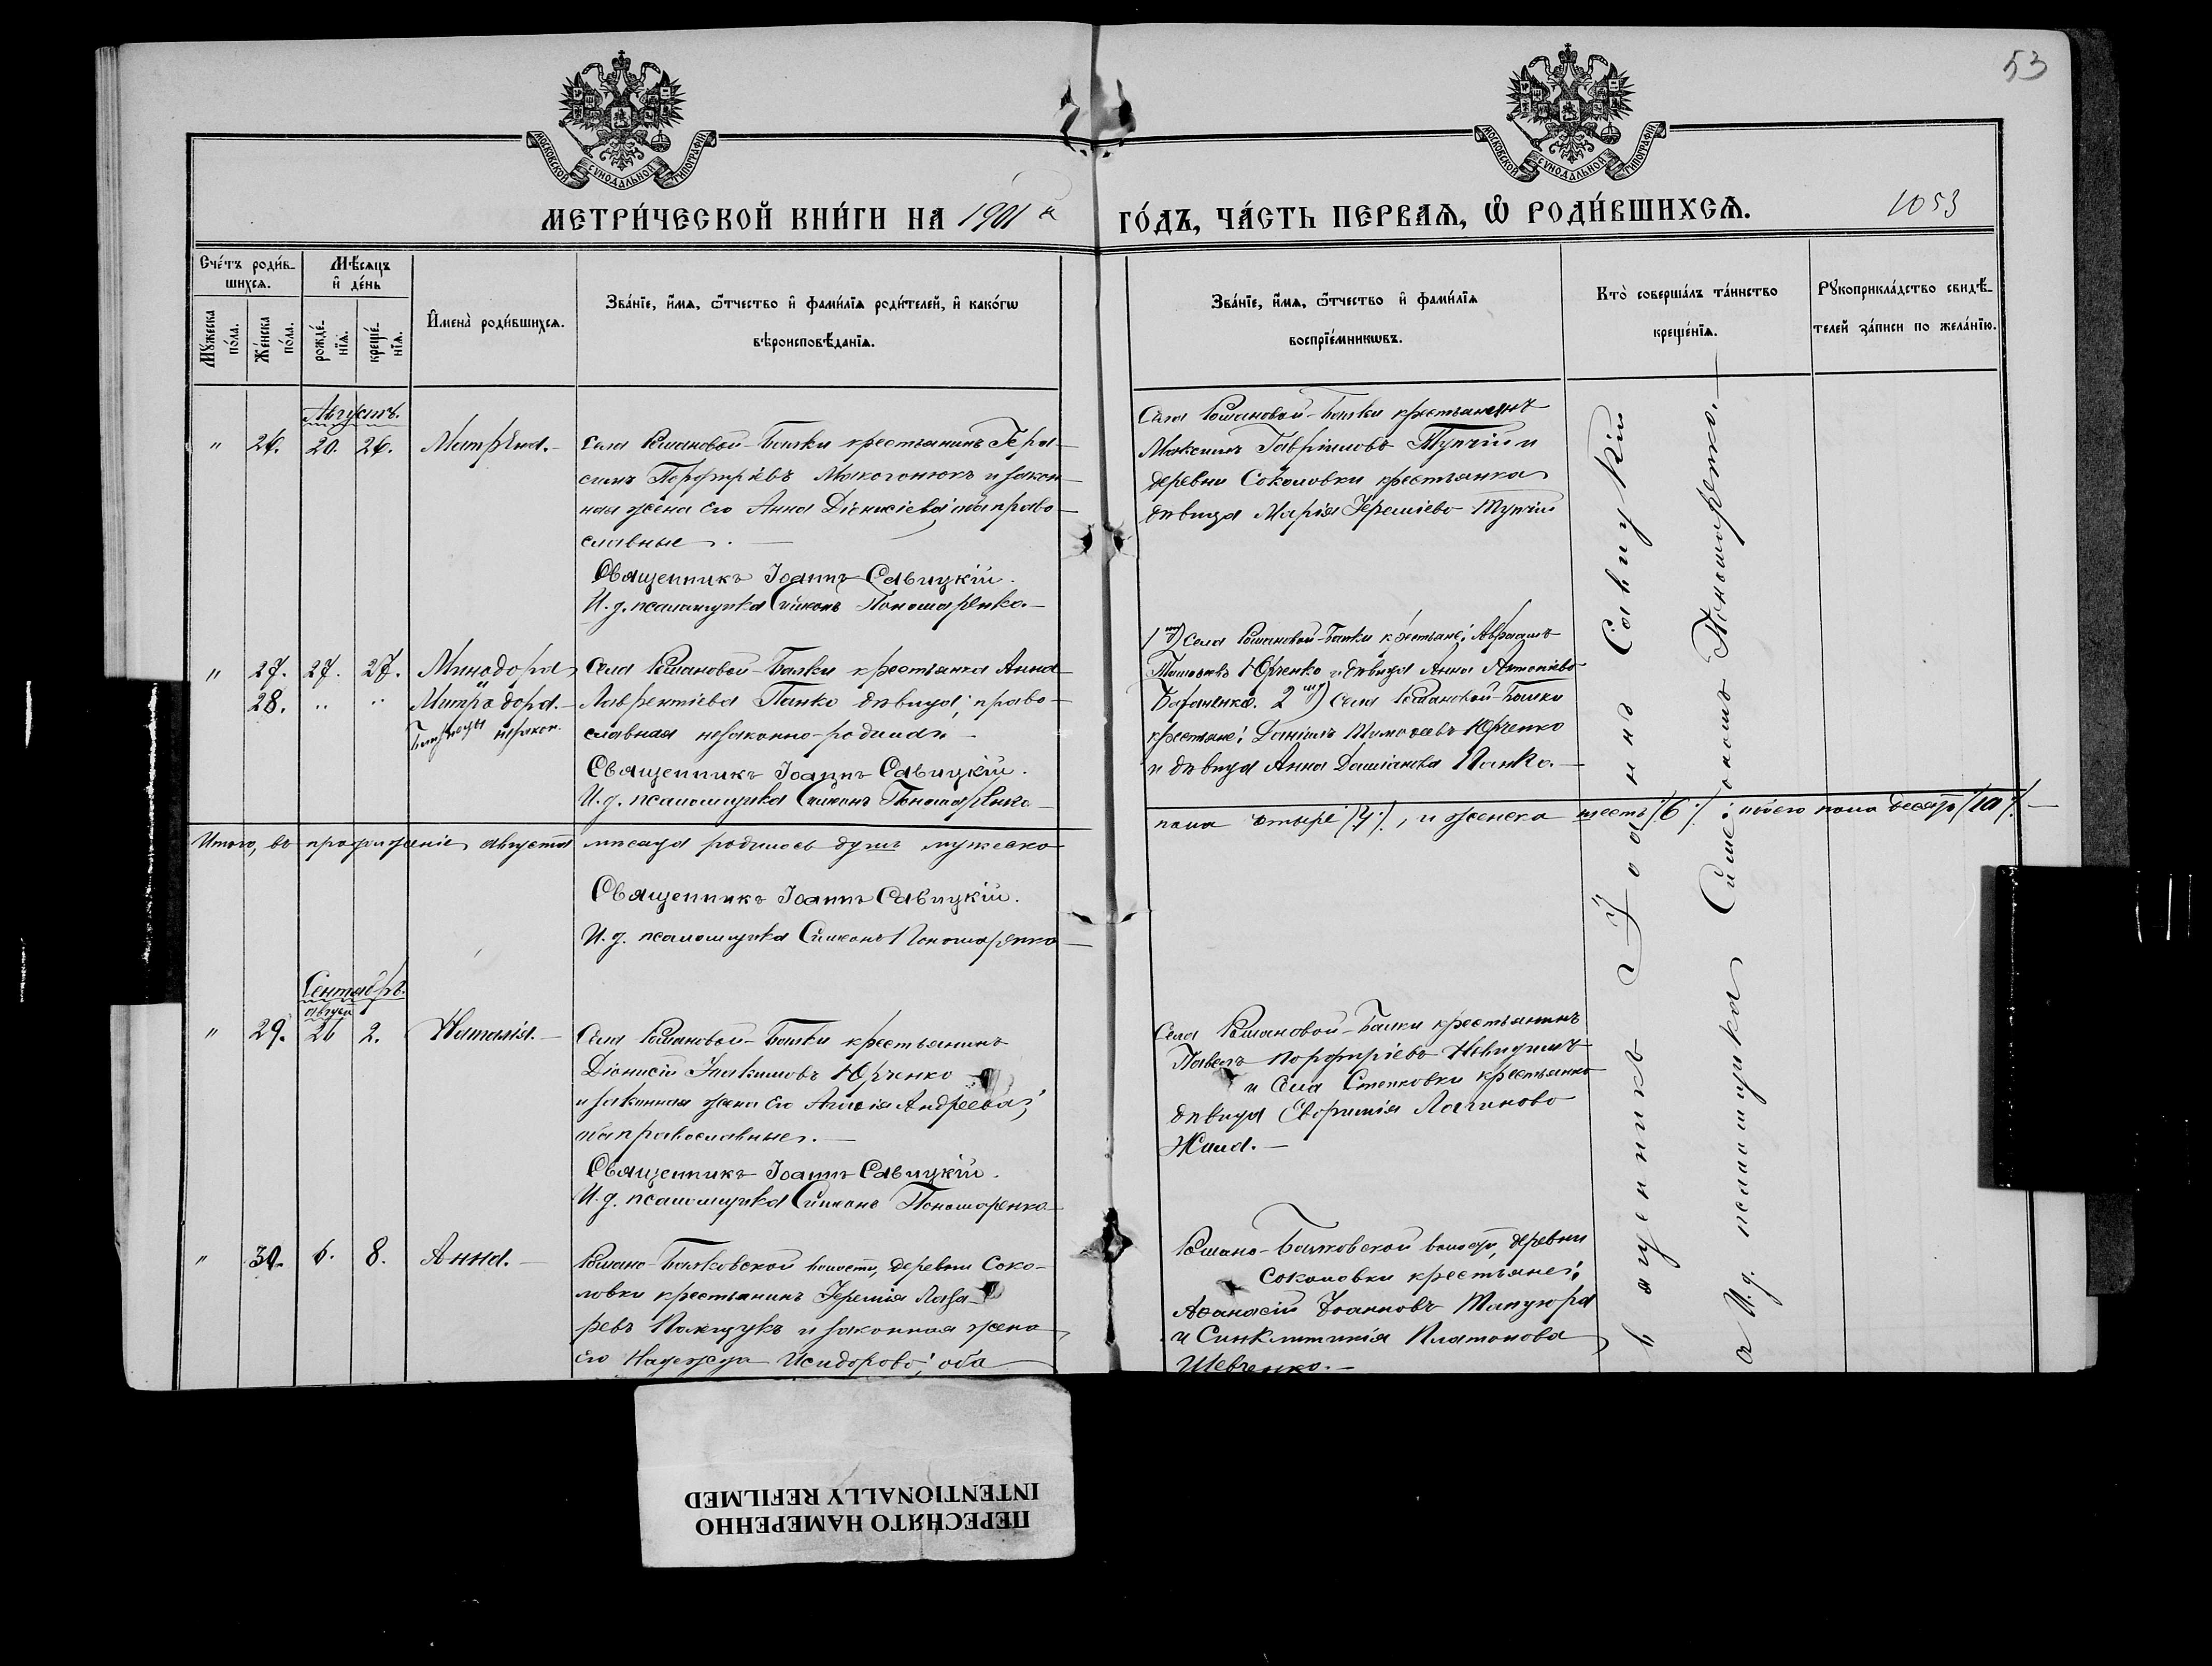 53
МОСКОВСКОЙ СУНОДАЛЬНОЙ ТИПОГРАФІИ
МОСКОВСКОЙ СУНОДАЛЬНОЙ ТИПОГРАФІИ
МЕТРИ́ЧЕСКОЙ КНИ́ГИ НА 1901 й
ГО́ДЪ, ЧА́СТЬ ПЕРВАѦ, Ѡ РОДИ́ВШИХСѦ.
1053
Сче́тъ роди́в-
шихсѧ.
Мужеска по́ла.
Же́нска по́ла.
Мѣ́сѧцъ
и де́нь
рожде́-
нїѧ.
креще́-
нїѧ.
Имена̀ роди́вшихсѧ.
Зва́нїе, и́мѧ, ѻ҆́тчество и фами́лїѧ роди́телей, и како́гѡ
вѣроисповѣ́данїѧ.
Зва́нїе, и́мѧ, ѻ҆́тчество и фами́лїѧ
воспрїе́мникѡвъ.
Кто̀ соверша́лъ та́инство
креще́нїѧ.
Рукоприкла́дство свидѣ́-
телей за́писи по жела́нїю.
Августъ.
" 26. 20. 26. Матрѣна.-
Села Романовой-Балки крестьянинъ Гера-
симъ Порфиріевъ Макогонюкъ и закон-
ная жена его Анна Діонисіева; оба право-
славные.-
Священникъ Іоаннъ Савицкій.
И. д. псаломщика Симеонъ Пономаренко.-
Села Романовой-Балки крестьянинъ
Максимъ Гавріиловъ Тупчій и
деревни Соколовки крестьянка
дѣвица Марія Іереміева Тупчій
" 27. 27. 27. Минодора
28. " " Митродора.-
Близнецы незакон.
Села Романовой-Балки крестьянка Анна
Лаврентіева Панко дѣвица; право-
славная незаконно-родила.-
Священникъ Іоаннъ Савицкій.
И. д. псаломщика Симеонъ Пономаренко-
1) Села Романовой-Балки крестьяне: Авраамъ
Юрченко и дѣвица Анна Антоніева
2) Села Романовой-Балки
крестьяне: Даніилъ Юрченко
и дѣвица Анна Даміанова Панко.-
Итого, въ продолженіе августа мѣсяца родилось душъ мужеска
пола четыре /4/, и женска шесть /6/. обоего пола десять /10/.-
Священникъ Іоаннъ Савицкій.
И. д. псаломщика Симеонъ Пономаренко-
Сентябрь.
августа
" 29. 26 2. Наталія.-
Села Романовой-Балки крестьянинъ
Діонисій Іоакимовъ Юрченко
и законная жена его Андреева;
оба православные.-
Священникъ Іоаннъ Савицкій.
И. д. псаломщика Симеонъ Пономаренко
Села Романовой-Балки крестьянинъ
Павелъ Порфиріевъ
и Села Степковки крестьянка
дѣвица Евфимія Логинова
" 30. 6. 8. Анна.-
Романо-Балковской волости, деревни Соко-
ловки крестьянинъ Іеремія Лаза-
ревъ Полищукъ и законная жена
его Надежда Исидорова; оба
Романо-Балковской волости, деревни
Соколовки крестьяне:
Аѳанасій Іоанновъ
и Синклитикія Платонова
Шевченко.-
Священникъ Іоаннъ Савицкій
И. д. псаломщика Симеонъ Пономаренко.-
ПЕРЕСНЯТО НАМЕРЕННО
INTENTIONALLY REFILMED